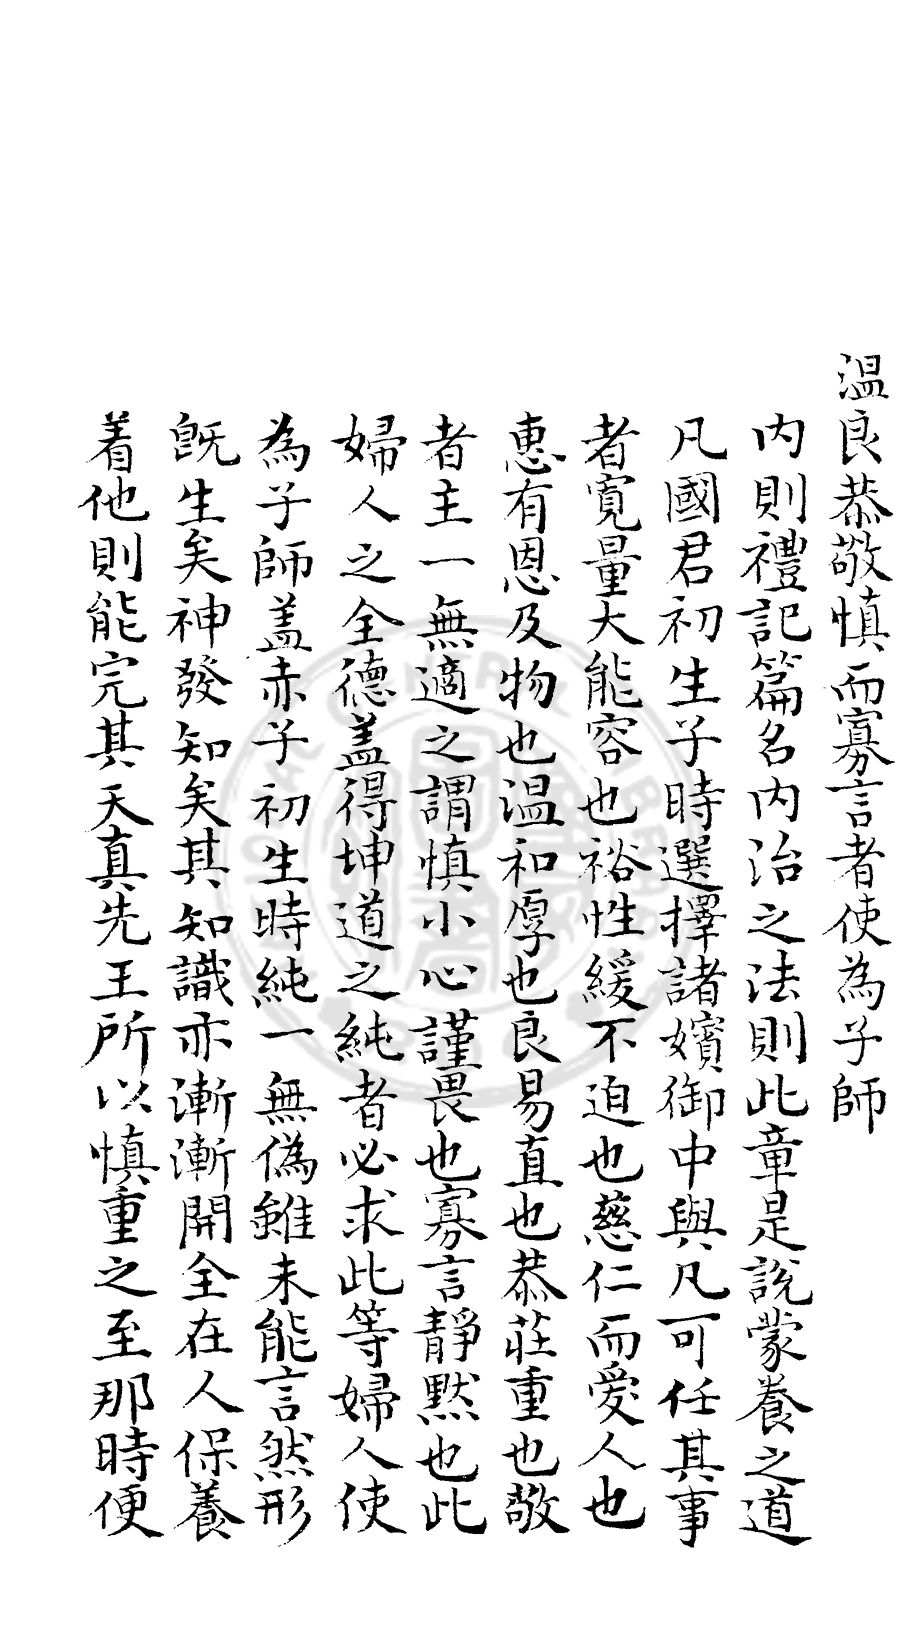 温良恭敬慎而寡言者使為子師
内則禮記篇名内治之法則此章是說蒙養之道
凡國君初生子時選擇諸嬪御中與凡可任其事
者寛量大能容也裕性緩不迫也慈仁而愛人也
惠有恩及物也温和厚也良易直也恭莊重也敬
者主一無適之謂慎小心謹畏也寡言靜默也此
婦人之全德蓋得坤道之純者必求此等婦人使
為子師蓋赤子初生時純一無偽雖未能言然形
既生矣神發知矣其知識亦漸漸開全在人保養
着他則能完其天真先王所以慎重之至那時便